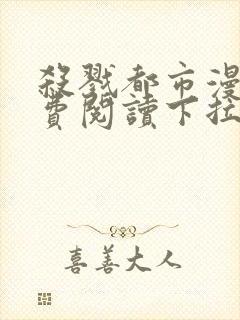 殺戮都市漫
費閱讀下拉
喜善大人